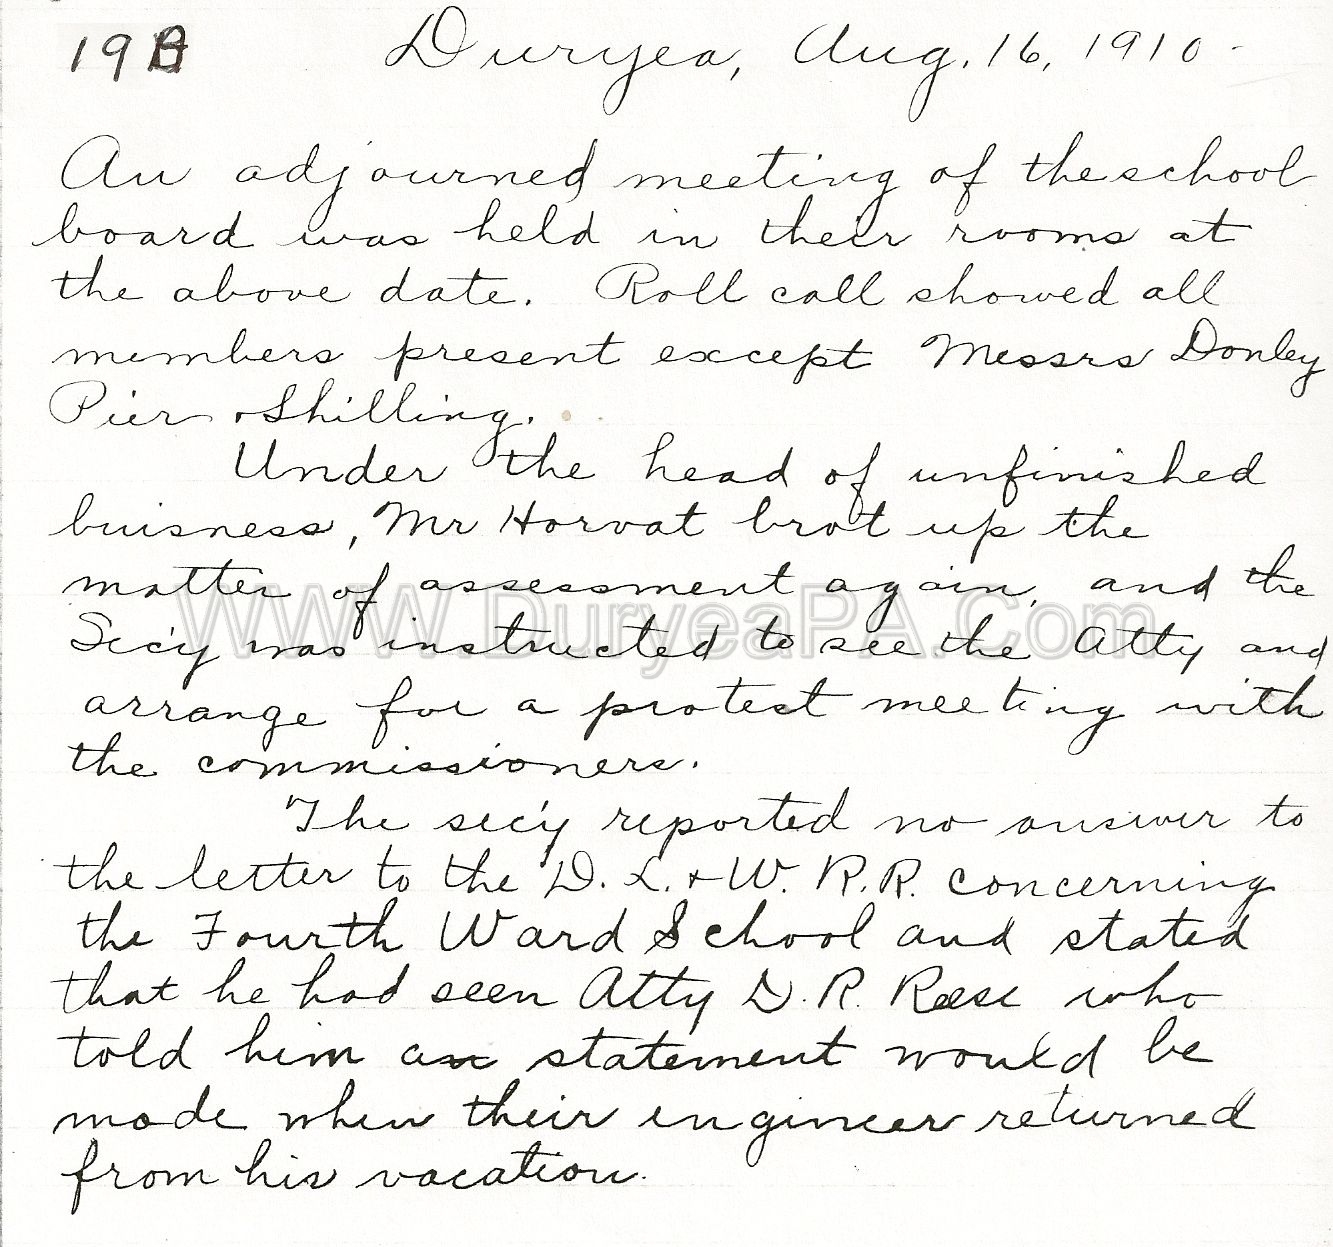 19B Duryea, Aug. 16, 1910
An adjourned meeting of the school
board was held in their rooms at
the above date. Roll call showed all
members present except Messrs Donley
Pier & Shilling.
Under the head of unfinished
buisness, Mr Horvat brot up the
matter of assessment again, and the
Sec'y was instructed to see the Atty and
arrange for a protest meeting with
the commissioners.
The sec'y reported no answer to
the letter to the D. L. & W. R. R. concerning
the Fourth Ward School and stated
that he had seen Atty D. R. Reese who
told him an statement would be
made when their engineer returned
from his vacation.
WWW.DuryeaPA.Com